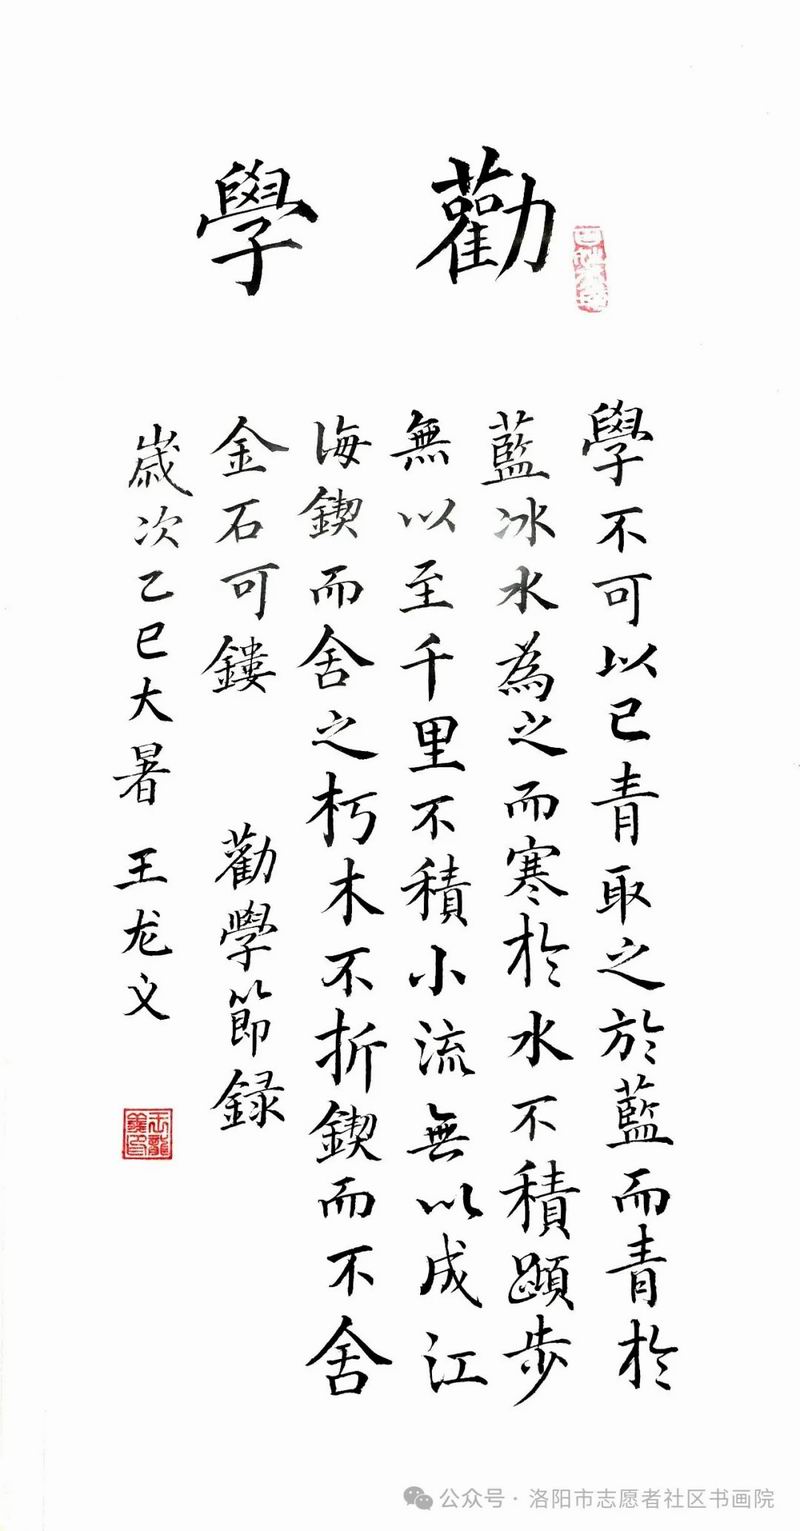 勸學
學不可以已青取之於藍而青於
藍冰水為之而寒於水不積蹞步
無以至千里不積小流無以成江
海鍥而舍之朽木不折鍥而不舍
金石可鏤 勸學節録
歲次乙巳大暑 王龙义
王龍義印
公众号·洛阳市志愿者社区书画院